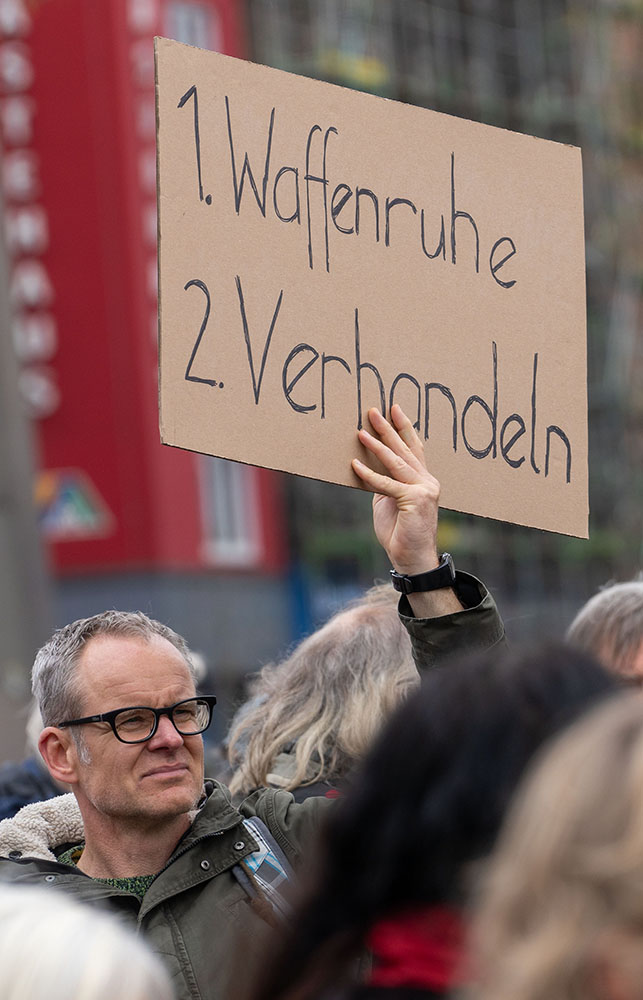 1. Waffenruhe
2. Verhandeln